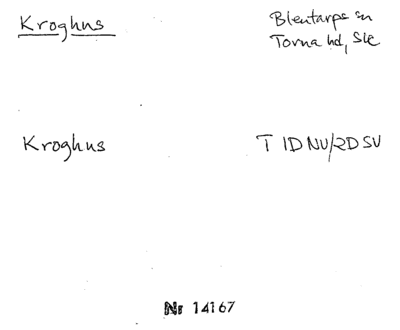 Kroghus
Blentarps sn
Torna hd, Sk
Kroghus
T 1D NV/2D SV
Nr 14167